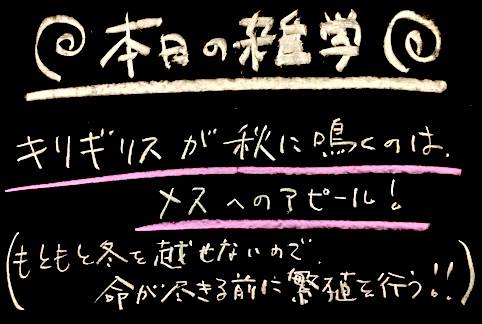 本日の雑学
キリギリスが秋に鳴くのは、
メスへのアピール!
(もともと冬を越せないので、
命が尽きる前に繁殖を行う!!)